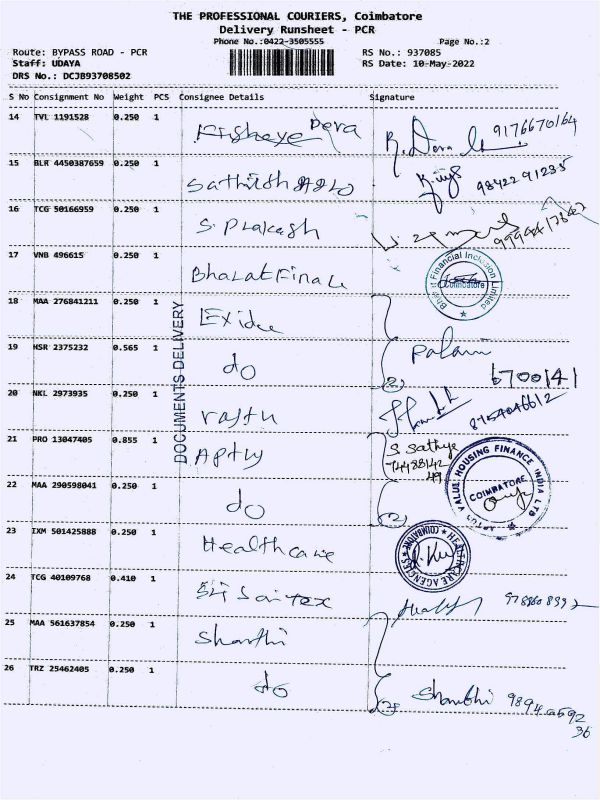 THE PROFESSIONAL COURIERS, Coimbatore
Delivery Runsheet - PCR
Phone No.:0422-3505555
Page No.:2
Route: BYPASS ROAD - PCR
RS No.: 937085
Staff: UDAYA
RS Date: 10-May-2022
DRS No.: DCJB93708502
S No Consignment No Weight PCS Consignee Details Signature
14 TVL 1191528 0.250 1 9176670164
15 BLR 4450387659 0.250 1 9842291235
16 TCG 50166959 0.250 1 S. Prakash
17 VNB 496615 0.250 1 Bharat Finance
Bharat Financial Inclusion Limited
Coimbatore
18 MAA 276841211 0.250 1 Exide
DOCUMENTS DELIVERY
19 HSR 2375232 0.565 1 do Palani
6700141
20 NKL 2973935 0.250 1
21 PRO 13047405 0.855 1 Aptus S. Sathya
VALUE HOUSING FINANCE INDIA LTD
COIMBATORE
22 MAA 290598041 0.250 1 do
23 IXM 501425888 0.250 1 Healthcare
HEALTHCARE AGENCIES
COIMBATORE
24 TCG 40109768 0.410 1
25 MAA 561637854 0.250 1 Shanthi
26 TRZ 25462405 0.250 1 do Shanthi